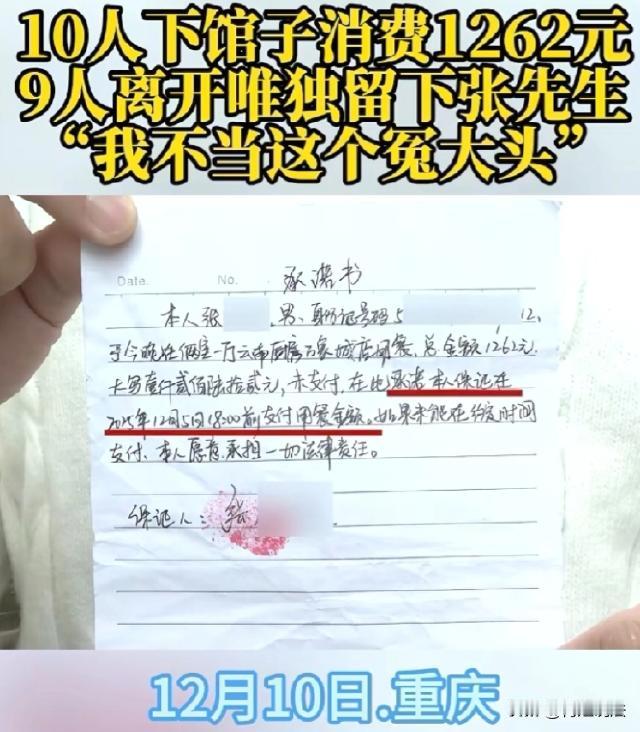 10人下馆子消费1262元
9人离开唯独留下张先生
“我不当这个冤大头”
Date.
No.
承诺书
本人张 ，男，身份证号码5 12，
于今晚在 一厅云南 万象城店用餐，总金额1262元
大写壹仟贰佰陆拾贰元，未支付，在此承诺本人保证在
2025年12月5日18:00前支付用餐金额。如果未能在约定时间
支付，本人愿意承担一切法律责任。
保证人：张
12月10日.重庆